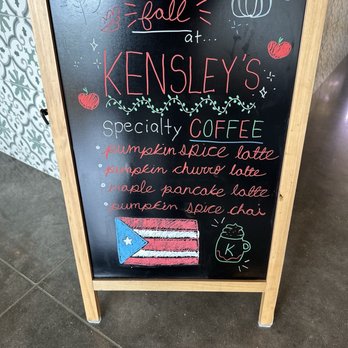 is fall
at...
KENSLEY'S
specialty COFFEE
• pumpkin spice latte
• pumpkin churro latte
• maple pancake latte
• pumpkin spice chai
K